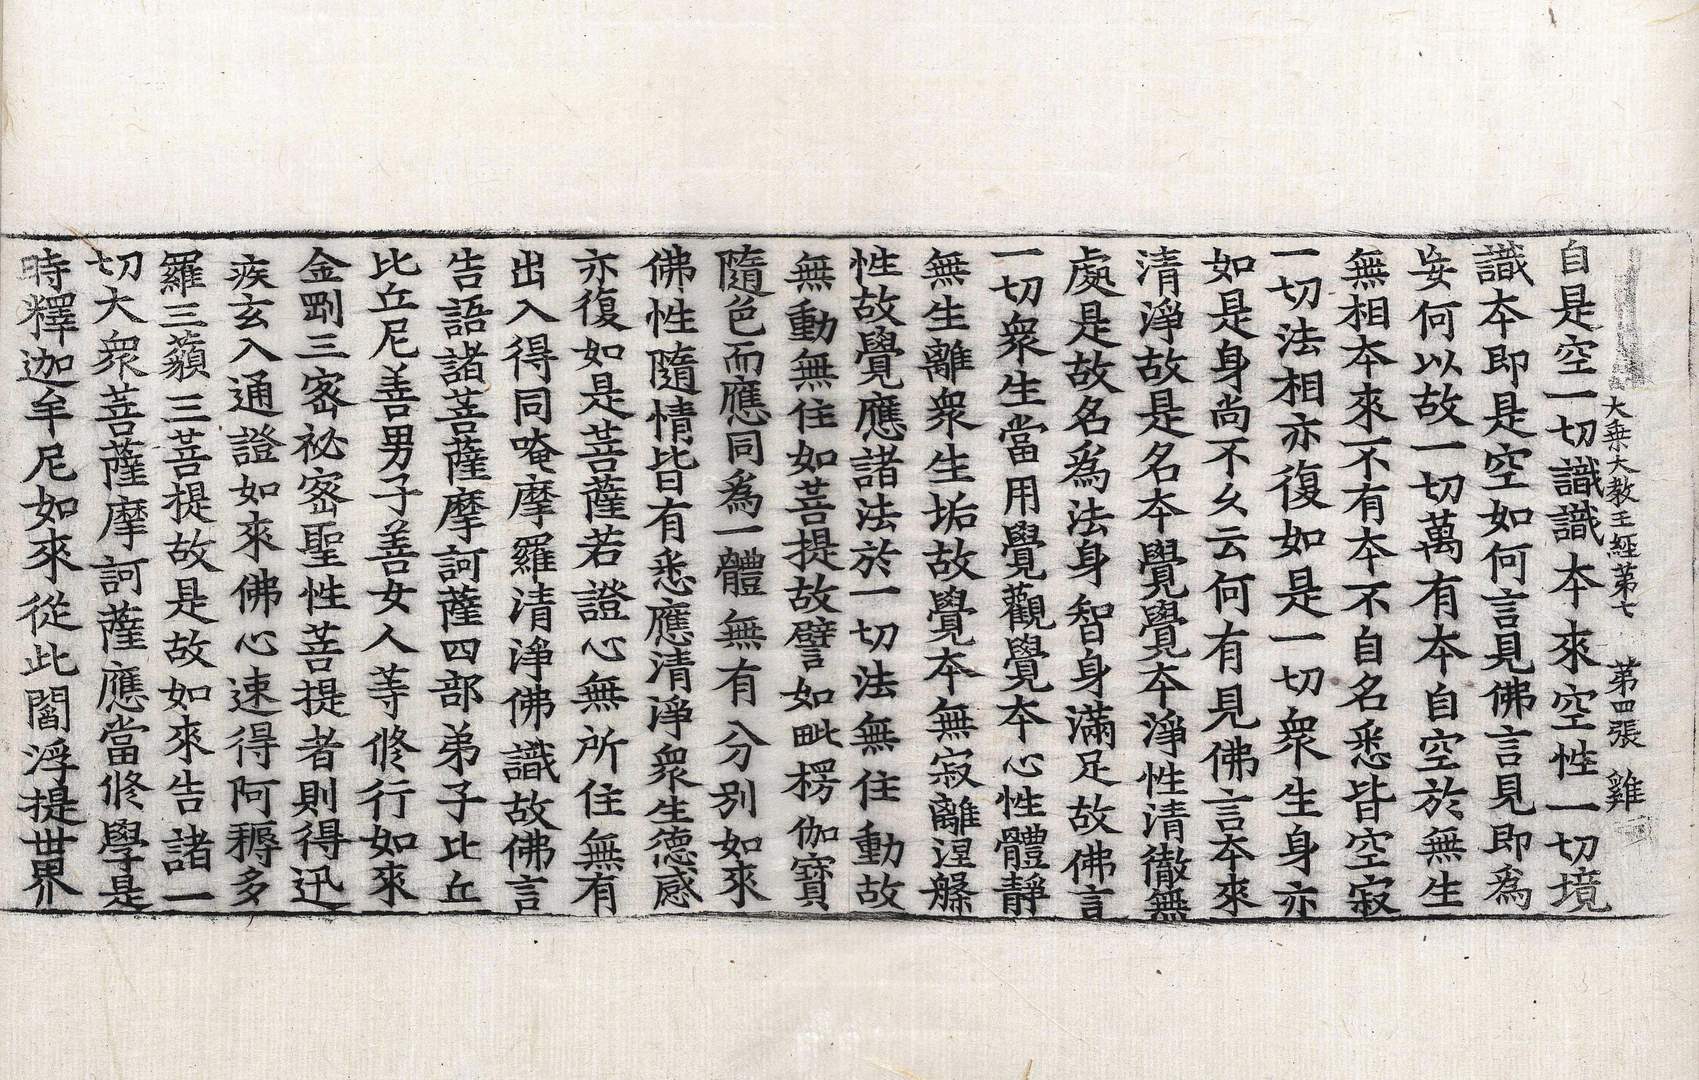 大乘大教王經第七　第四張　雞
自是空一切識識本來空性一切境
識本即是空如何言見佛言見即爲
妄何以故一切萬有本自空於無生
無相本來不有本不自名悉皆空寂
一切法相亦復如是一切衆生身亦
如是身尚不么云何有見佛言本來
清淨故是名本覺覺本淨性清徹無
處是故名爲法身智身滿足故佛言
一切衆生當用覺觀覺本心性體靜
無生離衆生垢故覺本無寂離涅槃
性故覺應諸法於一切法無住動故
無動無住如菩提故譬如毗楞伽寶
隨色而應同爲一體無有分別如來
佛性隨情皆有悉應清淨衆生德感
亦復如是菩薩若證心無所住無有
出入得同唵摩羅清淨佛識故佛言
告語諸菩薩摩訶薩四部弟子比丘
比丘尼善男子善女人等修行如來
金剛三密祕密聖性菩提者則得迅
疾玄入通證如來佛心速得阿耨多
羅三藐三菩提故是故如來告諸一
切大衆菩薩摩訶薩應當修學是
時釋迦牟尼如來從此閻浮提世界